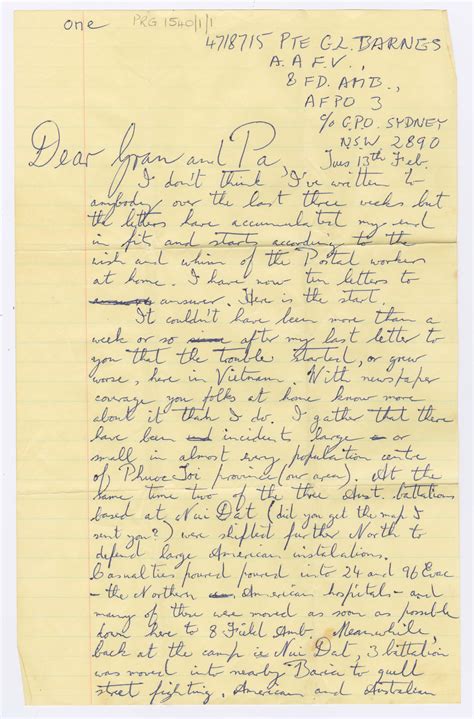 one PRG 1540/1/1
4718715 PTE G.L. BARNES
A.A.F.V.,
8 FD. AMB.,
AFPO 3
c/o G.P.O. SYDNEY
NSW 2890
Dear Gran and Pa, Tues 13th Feb.
I don't think I've written to
anybody over the last three weeks but
the letters have accumulated my end
in fits and starts according to the
wish and whim of the Postal workers
at home. I have now ten letters to
answer. Here is the start.
It couldn't have been more than a
week or so after my last letter to
you that the trouble started, or grew
worse, here in Vietnam. With newspaper
coverage you folks at home know more
about it than I do. I gather that there
have been incidents large or
small in almost every population centre
of Phuoc Toi province (our area). At the
same time two of the three Aust. battalions
based at Nui Dat (did you get the map I
sent you?) were shifted further North to
defend large American instalations.
Casualties poured poured into 24 and 96 Evac
- the Northern American hospitals - and
many of these were moved as soon as possible
down here to 8 Field Amb. Meanwhile,
back at the camp ie Nui Dat, 3 battalion
was moved into nearby Baria to quell
street fighting. American and Australian